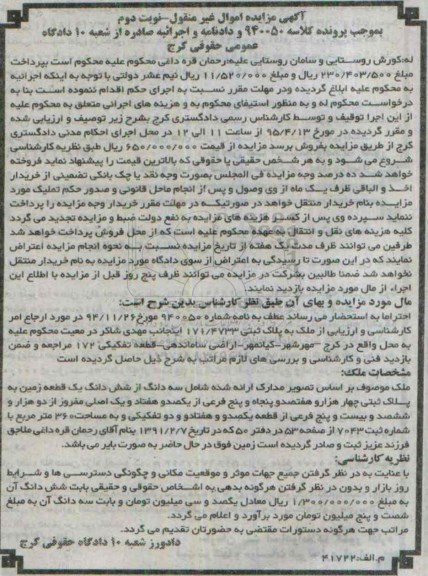 آگهی مزایده اموال غیر منقول-نوبت دوم
بموجب پرونده کلاسه ۹۴۰۰۵۰ و دادنامه و اجرائیه صادره از شعبه ۱۰ دادگاه
عمومی حقوقی کرج
له:کورش روستایی و سامان روستایی علیه:رحمان قره داغی محکوم علیه محکوم است بپرداخت
مبلغ ۲۳۰/۴۰۳/۵۰۰ ریال و مبلغ ۱۱/۵۲۰/۰۰۰ ریال نیم عشر دولتی با توجه به اینکه اجرائیه
به محکوم علیه ابلاغ گردیده ودر مهلت مقرر نسبت به اجرای حکم اقدام ننموده است بنا به
درخواست محکوم له و به منظور استیفای محکوم به و هزینه های اجرائی متعلق به محکوم علیه
از این اجرا توقیف و توسط کارشناس رسمی دادگستری کرج بشرح زیر توصیف و ارزیابی شده
و مقرر گردیده در مورخ ۹۵/۴/۱۳ از ساعت ۱۱ الی ۱۲ در محل اجرای احکام مدنی دادگستری
کرج از طریق مزایده بفروش برسد مزایده از قیمت ۶۵۰/۰۰۰/۰۰۰ ریال طبق نظریه کارشناسی
شروع می شود و به هر شخص حقیقی یا حقوقی که بالاترین قیمت را پیشنهاد نماید فروخته
خواهد شد ده درصد وجه مزایده فی المجلس بصورت وجه نقد یا چک بانکی تضمینی از خریدار
اخذ و الباقی ظرف یک ماه از وی وصول و پس از انجام ماحل قانونی و صدور حکم تملیک مورد
مزایده بنام خریدار منتقل خواهد در صورتیکه در مهلت مقرر خریدار وجه مزایده را پرداخت
ننماید سپرده وی پس از کسر هزینه های مزایده به نفع دولت ضبط و مزایده تجدید می گردد
کلیه هزینه های نقل و انتقال به عهده محکوم علیه است که از محل فروش پرداخت خواهد شد
طرفین می توانند ظرف مدت یک هفته از تاریخ مزایده نسبت به نحوه انجام مزایده اعتراض
نمایند که در این صورت تا رسیدگی به اعتراض از سوی دادگاه مورد مزایده به نام خریدار منتقل
نخواهد شد ضمنا طالبین بشرکت در مزایده می توانند ظرف پنج روز قبل از مزایده با اطلاع این
اجراء از مال مورد مزایده بازدید نمایند
مال مورد مزایده و بهای آن طبق نظر کارشناس بدین شرح است:
احتراما به استحضار می رساند عطف به نامه شماره ۹۴۰۰۵۰ مورخ ۹۴/۱۱/۲۶ در مورد ارجاع امر
کارشناسی و ارزیابی از ملک به پلاک ثبتی ۱۷۱/۴۷۳۳ اینجانب مهدی شاکر در معیت محکوم علیه
به محل واقع در کرج -مهرشهر-کیانمهر-اراضی ساماندهی-قطعه تفکیکی ۱۷۲ مراجعه و ضمن
بازدید فنی و کارشناسی و بررسی های لازم مراتب به شرح ذیل حاصل گردیده است
مشخصات ملک:
ملک موصوف بر اساس تصویر مدارک ارائه شده شامل سه دانگ از شش دانگ یک قطعه زمین به
پلاک ثبتی چهار هزارو هفتصدو پنجاه و پنج فرعی از یکصدو هفتاد و یک اصلی مفروز از دو هزار و
ششصد و بیست و پنج فرعی از قطعه یکصدو و هفتادو و دو تفکیکی و به مساحت ۳۶۰ متر مربع با
شماره ثبت ۷۰۴۳ از صفحه ۵۳ در دفتر ۵۰ که در تاریخ ۱۳۹۱/۲/۷ بنام آقای رحمان قره داغی ملاجق
فرزند عزیز ثبت و صادر گردیده است زمین فوق در حال حاضر به صورت بایر می باشد.
نظریه کارشناسی:
با عنایت به در نظر گرفتن جمیع جهات موثر و موقعیت مکانی و چگونگی دسترسی ها و شرایط
روز بازار و بدون در نظر گرفتن هرگونه بدهی به اشخاص حقوقی و حقیقی بابت شش دانگ آن
به مبلغ ۱/۳۰۰/۰۰۰/۰۰۰ ریال معادل یکصد و سی میلیون تومان و بابت سه دانگ آن به مبلغ
شصت و پنج میلیون تومان مورد برآورد و اعلام می گردد.
مراتب جهت هرگونه دستورات مقتضی به حضورتان تقدیم می گردد.
دادورز شعبه ۱۰ دادگاه حقوقی کرج
م.الف:۴۱۷۲۲